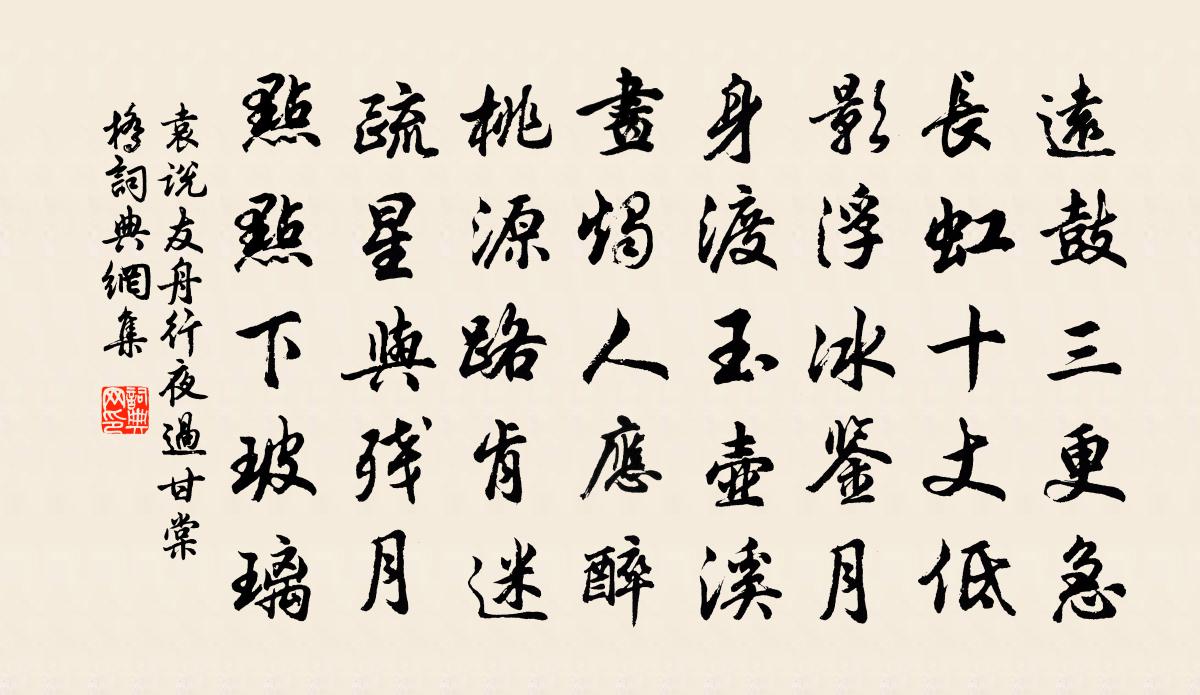 遠鼓三更急
長虹十丈低
影浮冰鉴月
身渡玉壺溪
畫燭人應醉
桃源路肯迷
疏星與残月
點點下玻璃
袁说友舟行夜過甘棠
橋詞典網集
詞典
网印